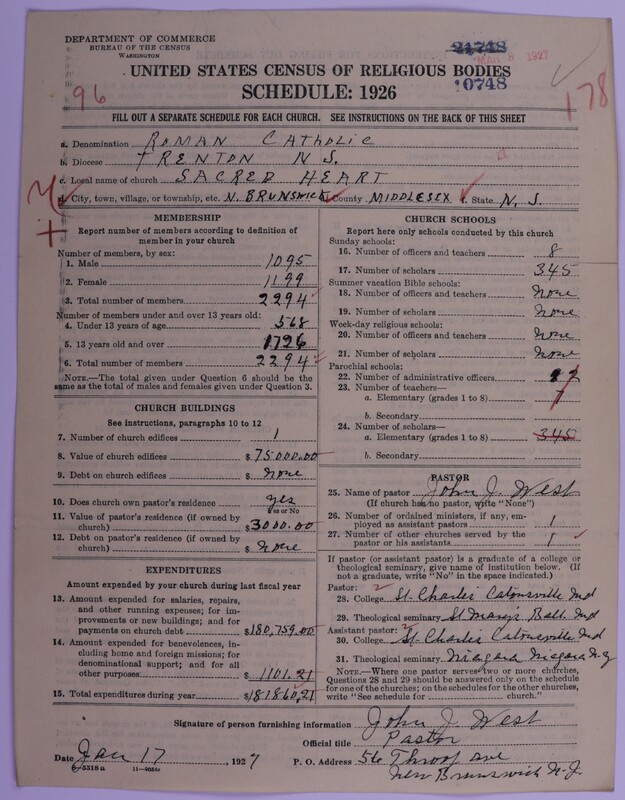 DEPARTMENT OF COMMERCE
BUREAU OF THE CENSUS
WASHINGTON
24748
MAR 8 1927
10748
UNITED STATES CENSUS OF RELIGIOUS BODIES
SCHEDULE: 1926
96
178
FILL OUT A SEPARATE SCHEDULE FOR EACH CHURCH. SEE INSTRUCTIONS ON THE BACK OF THIS SHEET
a. Denomination ROMAN CATHOLIC
b. Diocese TRENTON N J.
c. Local name of church SACRED HEART
d. City, town, village, or township, etc. N. BRUNSWICK e. County MIDDLESEX f. State N. J.
MEMBERSHIP
Report number of members according to definition of member in your church
Number of members, by sex:
1. Male 1095
2. Female 1199
3. Total number of members 2294
Number of members under and over 13 years old:
4. Under 13 years of age 568
5. 13 years old and over 1726
6. Total number of members 2294
NOTE.—The total given under Question 6 should be the
same as the total of males and females given under Question 3.
CHURCH BUILDINGS
See instructions, paragraphs 10 to 12
7. Number of church edifices 1
8. Value of church edifices $75000.00
9. Debt on church edifices $ None
10. Does church own pastor's residence yes
Yes or No
11. Value of pastor's residence (if owned by
church) $3000.00
12. Debt on pastor's residence (if owned by
church) $ None
EXPENDITURES
Amount expended by your church during last fiscal year
13. Amount expended for salaries, repairs,
and other running expenses; for im-
provements or new buildings; and for
payments on church debt $180,759.00
14. Amount expended for benevolences, in-
cluding home and foreign missions; for
denominational support; and for all
other purposes $ 1101.21
15. Total expenditures during year $181860.21
CHURCH SCHOOLS
Report here only schools conducted by this church
Sunday schools:
16. Number of officers and teachers 8
17. Number of scholars 345
Summer vacation Bible schools:
18. Number of officers and teachers None
19. Number of scholars None
Week-day religious schools:
20. Number of officers and teachers None
21. Number of scholars None
Parochial schools:
22. Number of administrative officers
23. Number of teachers—
a. Elementary (grades 1 to 8) 7
b. Secondary
24. Number of scholars—
a. Elementary (grades 1 to 8) 345
b. Secondary
PASTOR
25. Name of pastor John J. West
(If church has no pastor, write "None")
26. Number of ordained ministers, if any, em-
ployed as assistant pastors 1
27. Number of other churches served by the
pastor or his assistants 1
If pastor (or assistant pastor) is a graduate of a college or
theological seminary, give name of institution below. (If
not a graduate, write "No" in the space indicated.)
Pastor:
28. College St. Charles Catonsville Md
29. Theological seminary St Marys Balt. Md
Assistant pastor:
30. College St. Charles Catonsville Md
31. Theological seminary Niagara Niagara N.Y
NOTE.—Where one pastor serves two or more churches,
Questions 28 and 29 should be answered only on the schedule
for one of the churches; on the schedules for the other churches,
write "See schedule for church."
Signature of person furnishing information John J. West
Official title Pastor
Date Jan 17, 1927 P. O. Address 56 Throop ave
New Brunswick N.J.